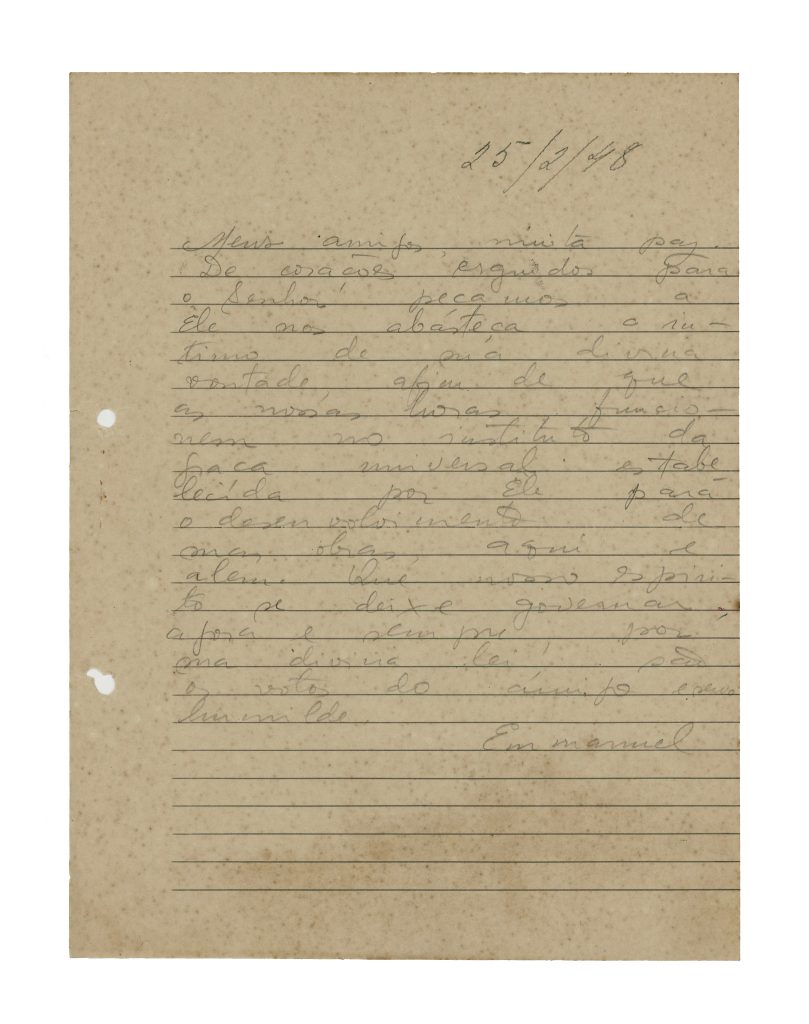 25/2/48
Meus amigos, muita paz.
De corações erguidos para
o Senhor, peçamos a
Êle nos abasteça o ín-
timo de sua divina
vontade, afim de que
as nossas horas funcio-
nem no instituto da
graça universal estabe
lecida por Êle para
o desenvolvimento de
suas obras, aqui e
alem. Que nosso espiri-
to se deixe governar,
agora e sempre, por
sua divina lei, são
os votos do amigo e servo
humilde
Emmanuel